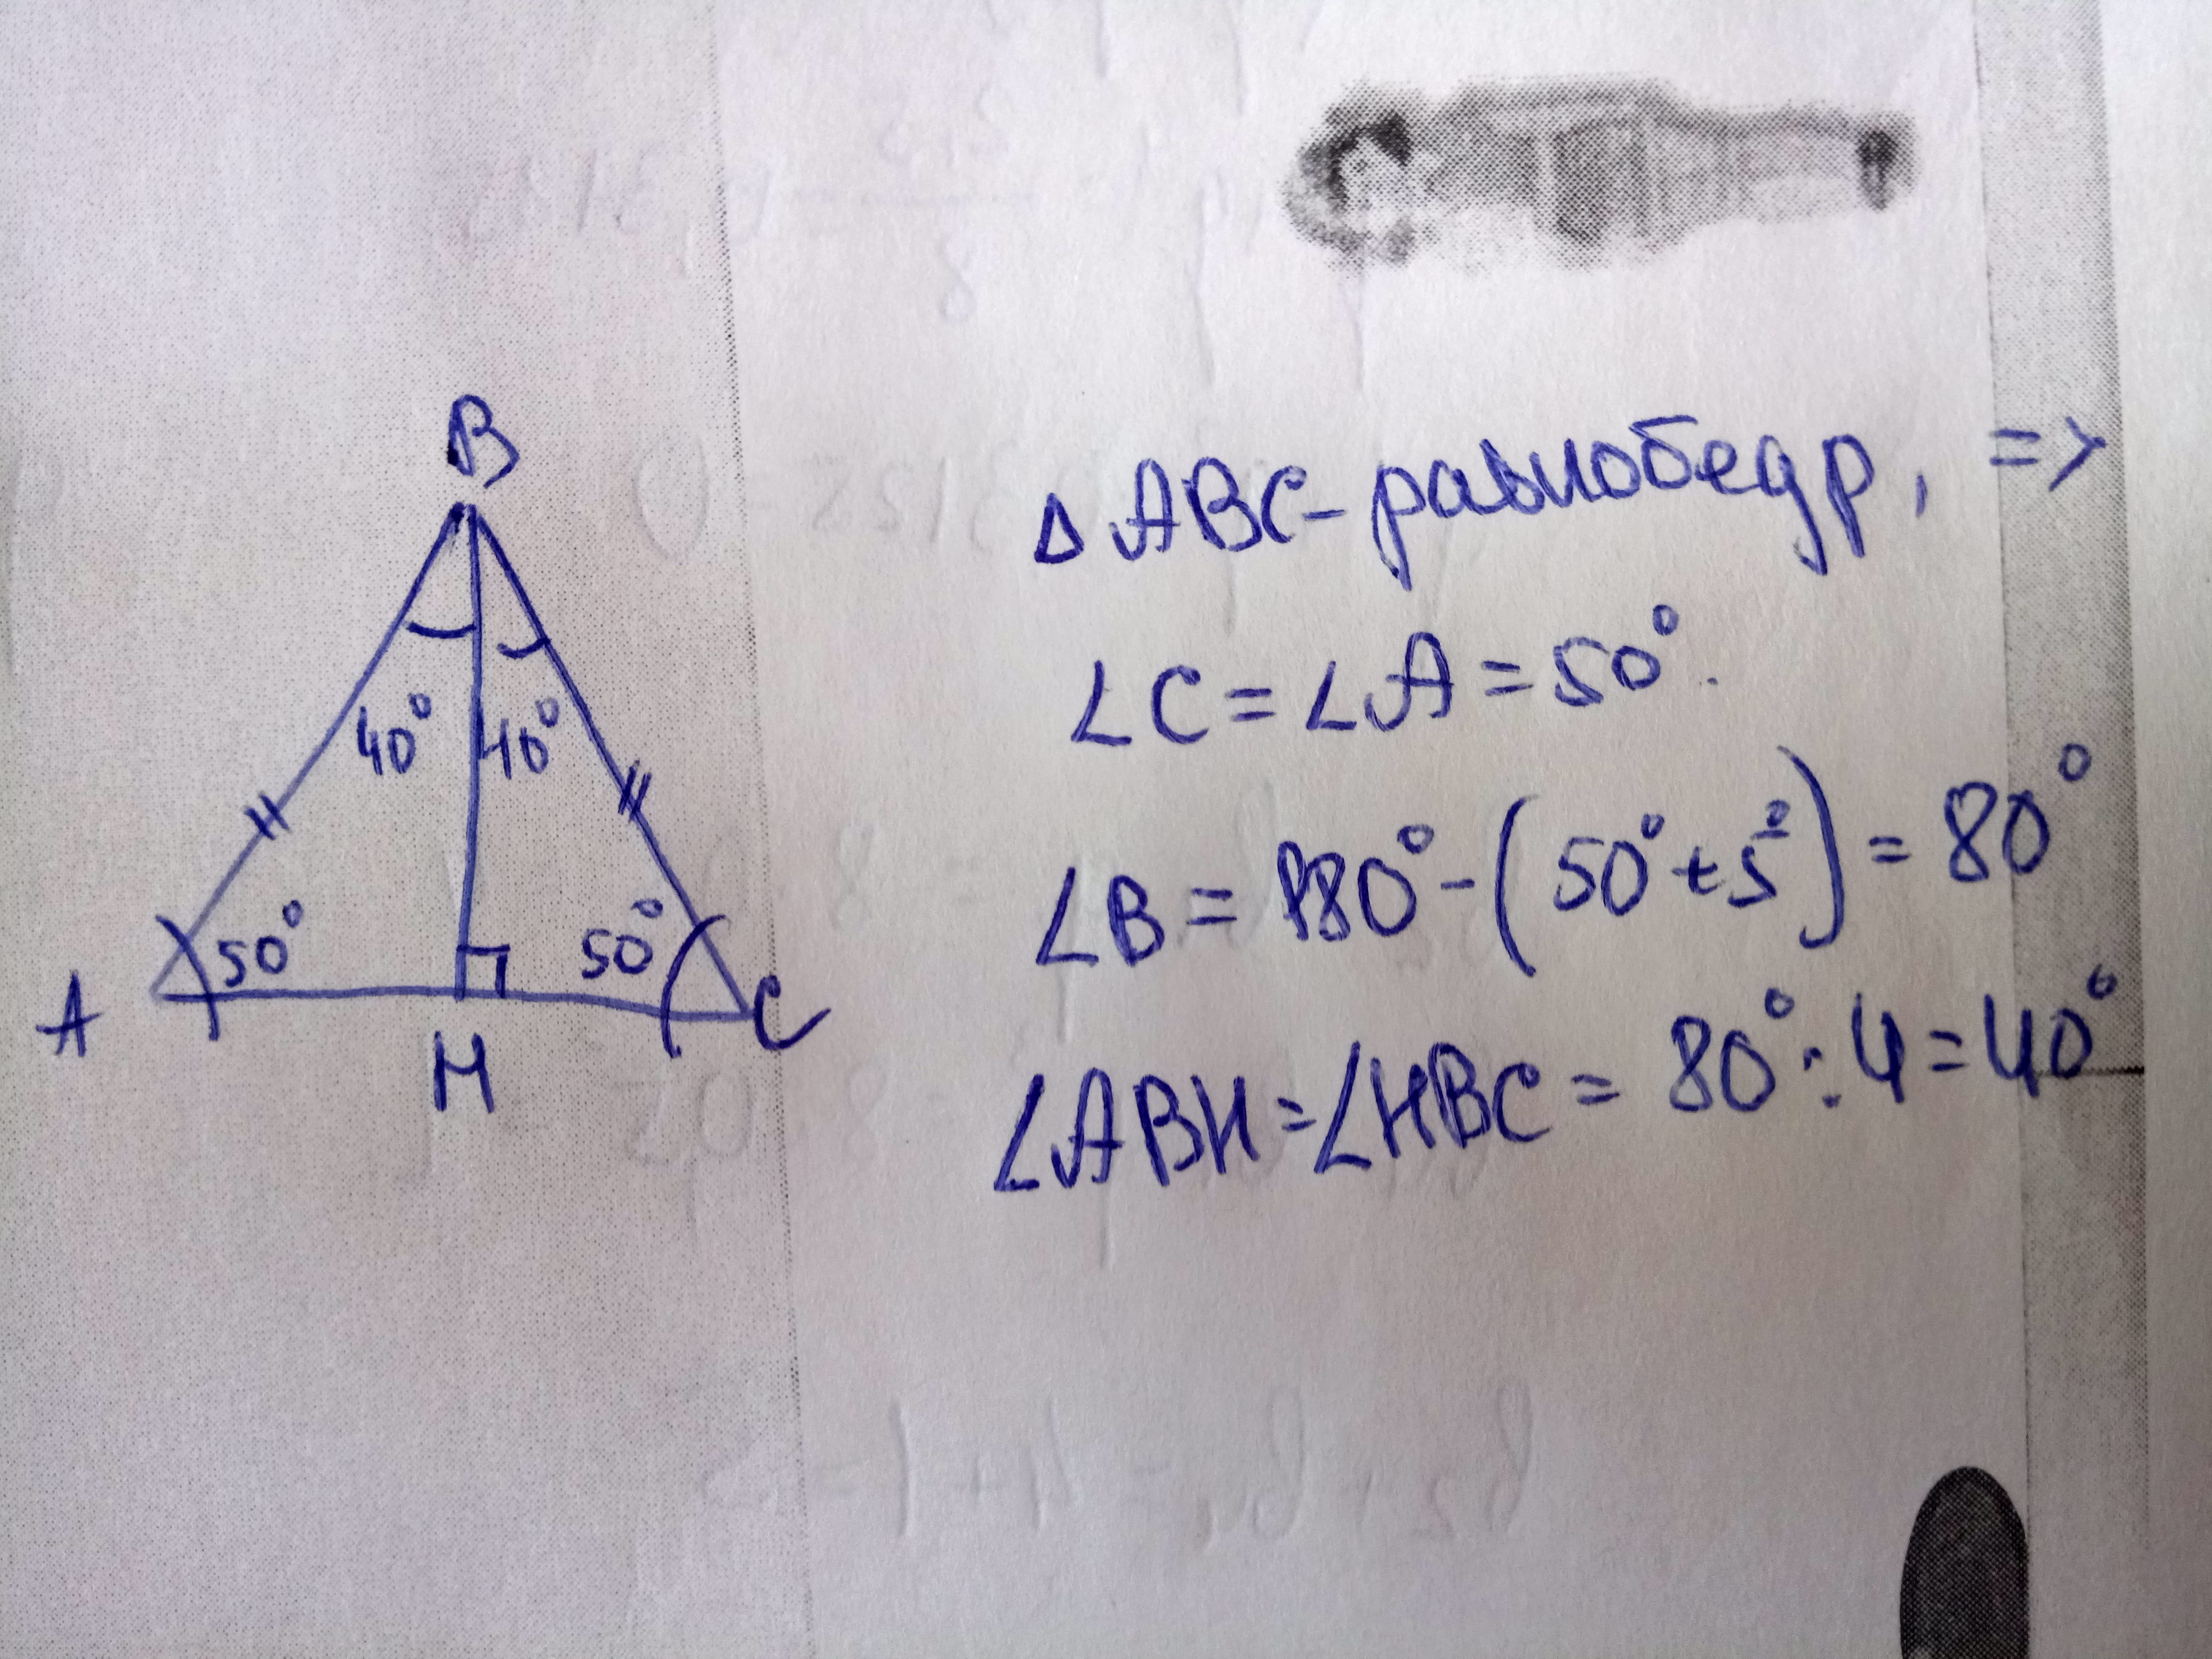 B
40° 40°
50° 50°
A C
H
Δ ABC - равнобедр, =>
∠C = ∠A = 50°.
∠B = 180° - (50° + 5°) = 80°
∠ABH = ∠HBC = 80° : 4 = 40°